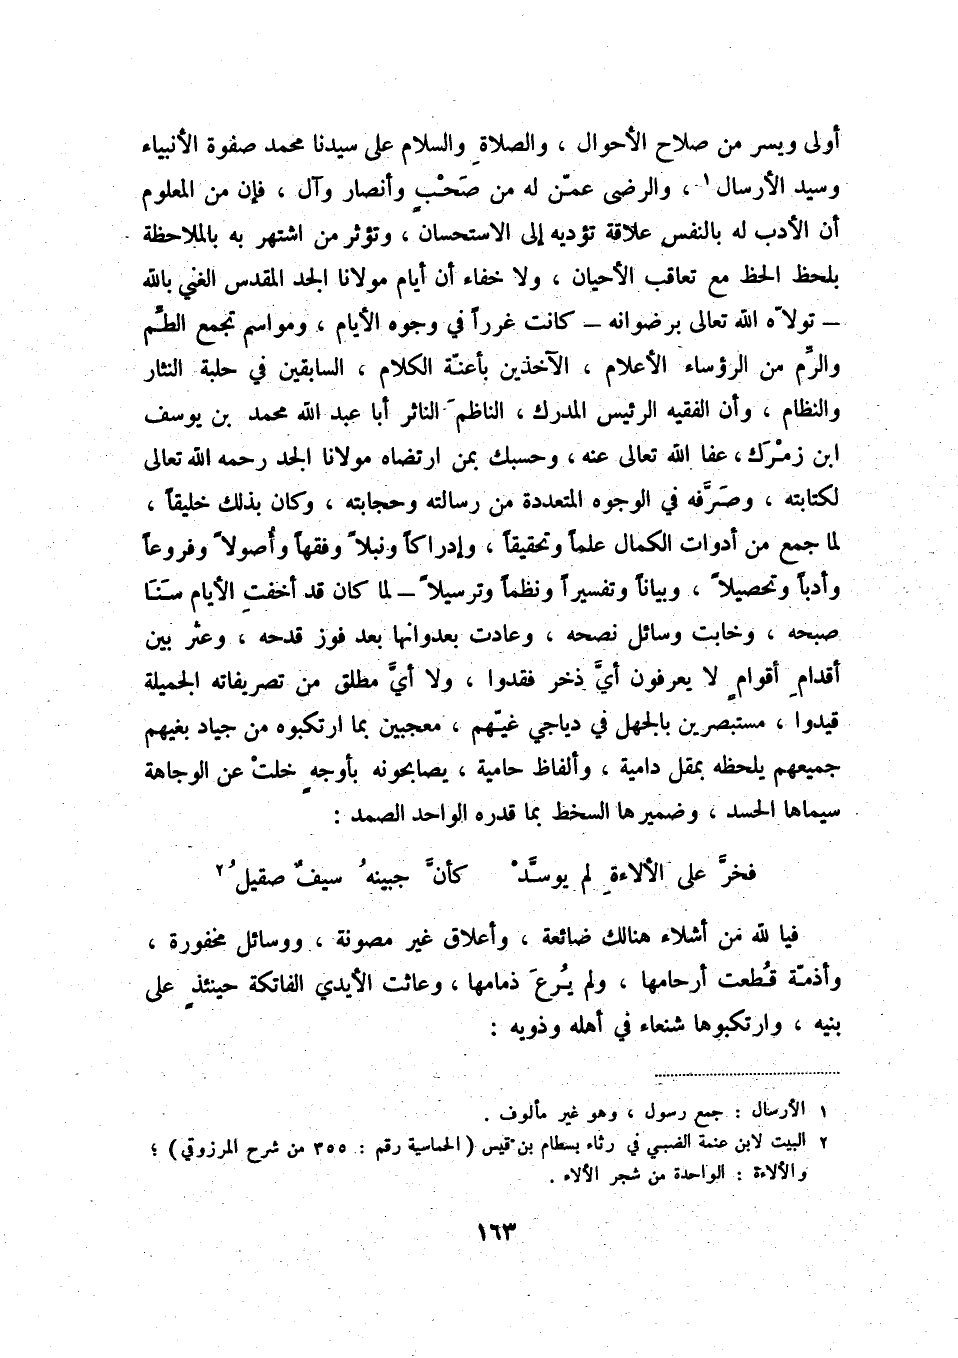 أولى ويسر من صلاح الأحوال ، والصلاةِ والسلام على سيدنا محمد صفوة الأنبياء
وسيد الأرسال ١ ، والرضى عمّن له من صَحْبٍ وأنصار وآل ، فإن من المعلوم
أن الأدب له بالنفس علاقة تؤديه إلى الاستحسان ، وتؤثر من اشتهر به بالملاحظة
بلحظ الحظ مع تعاقب الأحيان ، ولا خفاء أن أيام مولانا الجد المقدس الغني بالله
– تولاّه الله تعالى برضوانه – كانت غرراً في وجوه الأيام ، ومواسم تجمع الطِّم
والرِّم من الرؤساء الأعلام ، الآخذين بأعنّة الكلام ، السابقين في حلبة النثار
والنظام ، وأن الفقيه الرئيس المدرك ، الناظمَ الناثر أبا عبد الله محمد بن يوسف
ابن زمْرَك ، عفا الله تعالى عنه ، وحسبك بمن ارتضاه مولانا الجد رحمه الله تعالى
لكتابته ، وصَرَّفه في الوجوه المتعددة من رسالته وحجابته ، وكان بذلك خليقاً ،
لما جمع من أدوات الكمال علماً وتحقيقاً ، وإدراكاً ونبلاً وفقهاً وأُصولاً وفروعاً
وأدباً وتحصيلاً ، وبياناً وتفسيراً ونظماً وترسيلاً – لما كان قد أخفتِ الأيام سَنَا
صبحه ، وخابت وسائل نصحه ، وعادت بعدوانها بعد فوز قدحه ، وعثر بين
أقدامِ أقوامٍ لا يعرفون أيَّ ذخر فقدوا ، ولا أيَّ مطلق من تصريفاته الجميلة
قيدوا ، مستبصرين بالجهل في دياجي غيّهم ، معجبين بما ارتكبوه من جياد بغيهم
جميعهم يلحظه بمقل دامية ، وألفاظ حامية ، يصابحونه بأوجهٍ خلتْ عن الوجاهة
سيماها الحسد ، وضميرها السخط بما قدره الواحد الصمد :
فخرَّ على الألاءةِ لم يوسَّدْ    كأنَّ جبينهُ سيفٌ صقيلُ ٢
فيا لله مَن أشلاء هنالك ضائعة ، وأعلاق غير مصونة ، ووسائل مخفورة ،
وأذمّة قُطعت أرحامها ، ولم يُرعَ ذمامها ، وعاثت الأيدي الفاتكة حينئذٍ على
بنيه ، وارتكبوها شنعاء في أهله وذويه :
١ الأرسال : جمع رسول ، وهو غير مألوف .
٢ البيت لابن عنمة الضبي في رثاء بسطام بن قيس ( الحماسية رقم : ٣٥٥ من شرح المرزوقي ) ؛
والألاءة : الواحدة من شجر الألاء .
١٦٣